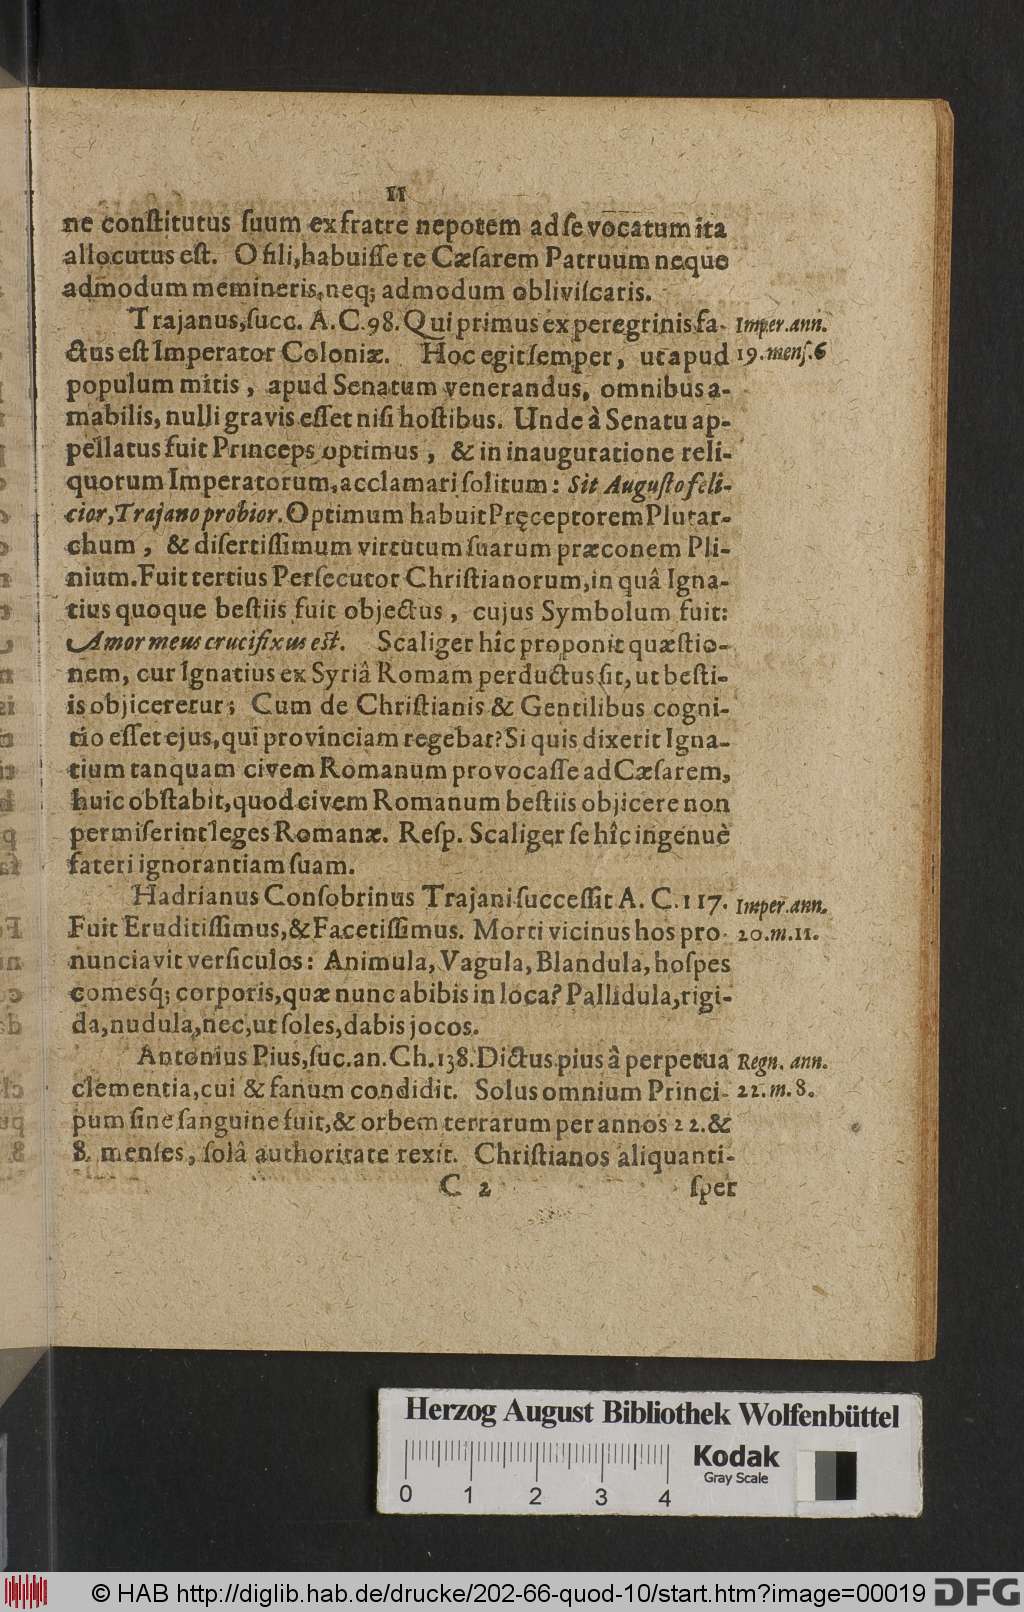 11
ne conſtitutus ſuum ex fratre nepotem ad ſe vocatum ita
allocutus eſt. O fili, habuiſſe te Cæſarem Patruum neque
admodum memineris, neq; admodum obliviſcaris.
Trajanus, ſucc. A. C. 98. Qui primus ex peregrinis fa- Imper. ann.
ctus eſt Imperator Coloniæ. Hoc egit ſemper, ut apud 19. menſ. 6
populum mitis, apud Senatum venerandus, omnibus a-
mabilis, nulli gravis eſſet niſi hoſtibus. Unde à Senatu ap-
pellatus fuit Princeps optimus, & in inauguratione reli-
quorum Imperatorum, acclamari ſolitum: Sit Auguſto feli-
cior, Trajano probior. Optimum habuit Pręceptorem Plutar-
chum, & diſertiſſimum virtutum ſuarum præconem Pli-
nium. Fuit tertius Perſecutor Chriſtianorum, in quâ Igna-
tius quoque beſtiis fuit objectus, cujus Symbolum fuit:
Amor meus crucifixus eſt. Scaliger hîc proponit quæſtio-
nem, cur Ignatius ex Syriâ Romam perductus ſit, ut beſti-
is objiceretur; Cum de Chriſtianis & Gentilibus cogni-
tio eſſet ejus, qui provinciam regebat? Si quis dixerit Igna-
tium tanquam civem Romanum provocaſſe ad Cæſarem,
huic obſtabit, quod civem Romanum beſtiis objicere non
permiſerint leges Romanæ. Reſp. Scaliger ſe hîc ingenuè
fateri ignorantiam ſuam.
Hadrianus Conſobrinus Trajani ſucceſſit A. C. 117. Imper. ann.
Fuit Eruditiſſimus, & Facetiſſimus. Morti vicinus hos pro- 20. m. 11.
nunciavit verſiculos: Animula, Vagula, Blandula, hoſpes
comesq́; corporis, quæ nunc abibis in loca? Pallidula, rigi-
da, nudula, nec, ut ſoles, dabis jocos.
Antonius Pius, ſuc. an. Ch. 138. Dictus pius â perpetua Regn. ann.
clementia, cui & fanum condidit. Solus omnium Princi- 22. m. 8.
pum ſine ſanguine fuit, & orbem terrarum per annos 22. &
8. menſes, ſolâ authoritate rexit. Chriſtianos aliquanti-
C 2 ſper
Herzog August Bibliothek Wolfenbüttel
Kodak
Gray Scale
0 1 2 3 4
© HAB http://diglib.hab.de/drucke/202-66-quod-10/start.htm?image=00019 DFG